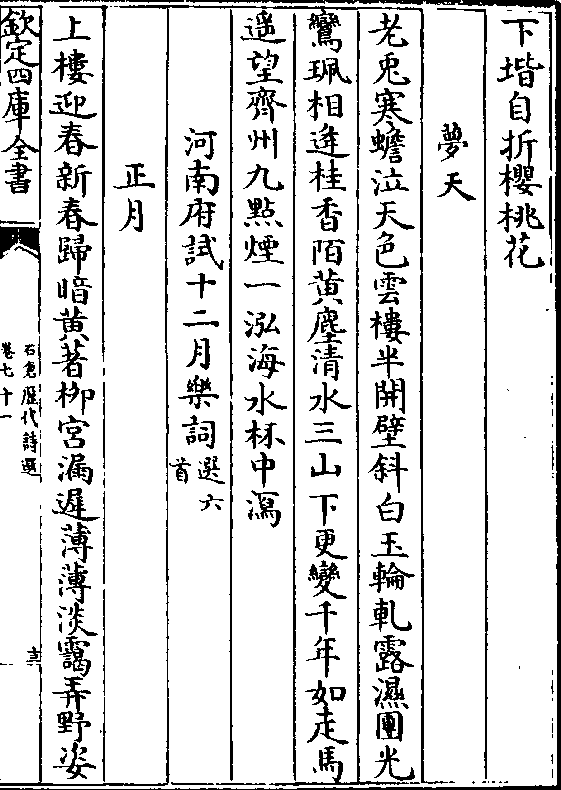 下堦自折櫻桃花
夢天
老兎寒蟾泣天色雲樓半開壁斜白玉輪軋露濕團光
鸞珮相逢桂香陌黄塵清水三山下更變千年如走馬
遥望齊州九點煙一泓海水杯中瀉
河南府試十二月樂詞選六首
正月
上樓迎春新春歸暗黄著柳宫漏遲薄薄淡靄弄野姿
欽定四庫全書
石倉歴代詩選
卷七十一